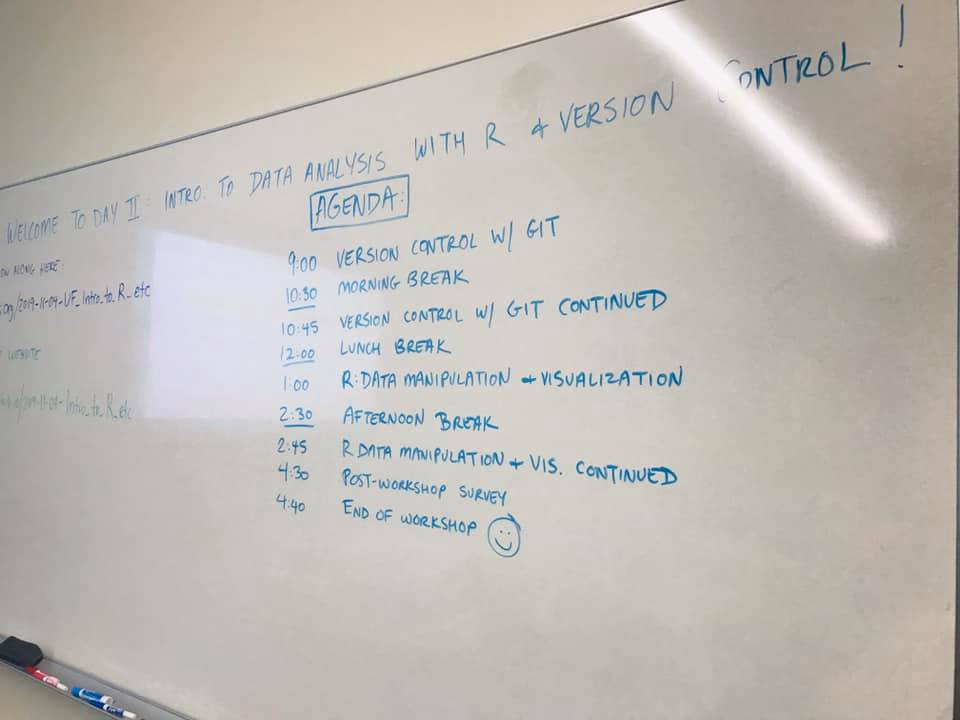 WELCOME TO DAY II: INTRO. TO DATA ANALYSIS WITH R & VERSION CONTROL!
AGENDA:
9:00 VERSION CONTROL W/ GIT
10:30 MORNING BREAK
10:45 VERSION CONTROL W/ GIT CONTINUED
12:00 LUNCH BREAK
1:00 R: DATA MANIPULATION & VISUALIZATION
2:30 AFTERNOON BREAK
2:45 R DATA MANIPULATION & VIS. CONTINUED
4:30 POST-WORKSHOP SURVEY
4:40 END OF WORKSHOP
ALONG HERE:
/2019-11-04-UF_Intro_to_R_etc
WEBSITE
/2019-11-04-Intro_to_R_etc